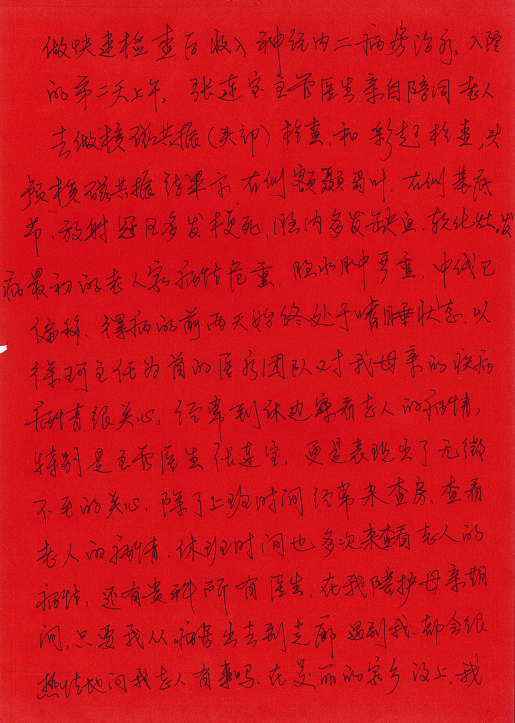 做快速检查后收入神经内二病房治疗。入院
的第二天上午，张连宝主管医生亲自陪同老人
去做核磁共振（头部）检查，和彩超检查，头
颅核磁共振结果示右侧额颞岛叶、右侧基底
节、放射冠区多发梗死，脑内多发缺血、软化灶，发
病最初的老人家病情危重，脑水肿严重，中线已
偏移，得病的前两天始终处于嗜睡状态，以
徐珂主任为首的医疗团队对我母亲的疾病
病情很关心，经常到休边察看老人的病情，
特别是主管医生张连宝，更是表现出了无微
不至的关心，除了上班时间经常来查房、查看
老人的病情，休班时间也多次来查看老人的
病情，还有贵科所有医生，在我陪护母亲期
间，只要我从病房出去到走廊遇到我，都会很
热情地问我老人有事吗，在美丽的家乡汶上，我